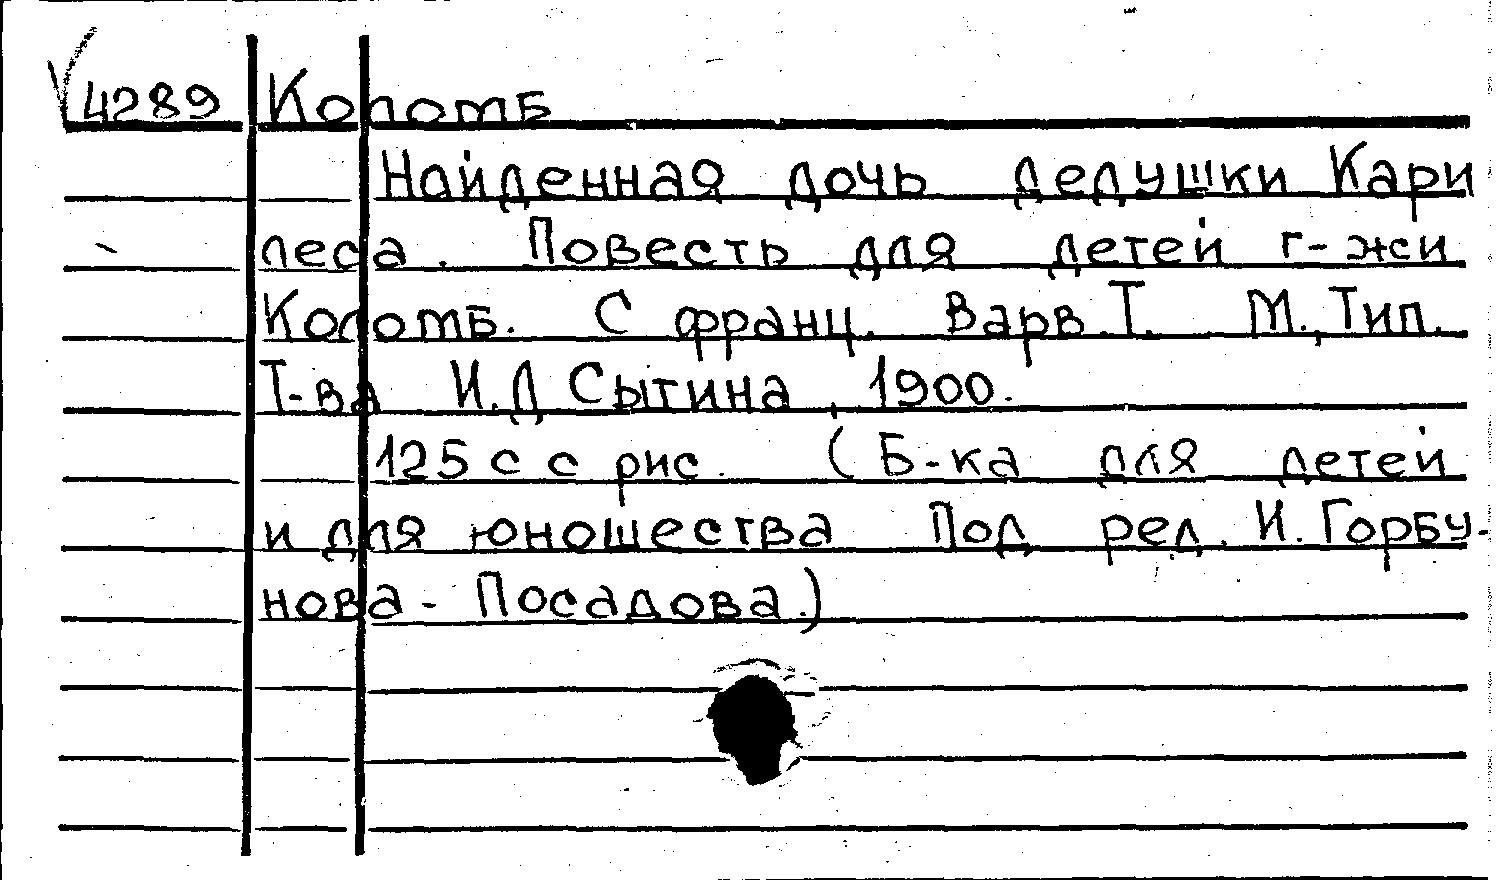 4289 Коломб
Найденная дочь дедушки Кари
леса. Повесть для детей г-жи
Коломб. С франц. Варв. Т. М., Тип.
Т-ва И. Д Сытина, 1900.
125 с с рис. (Б-ка для детей
и для юношества Под ред. И. Горбу-
нова - Посадова.)